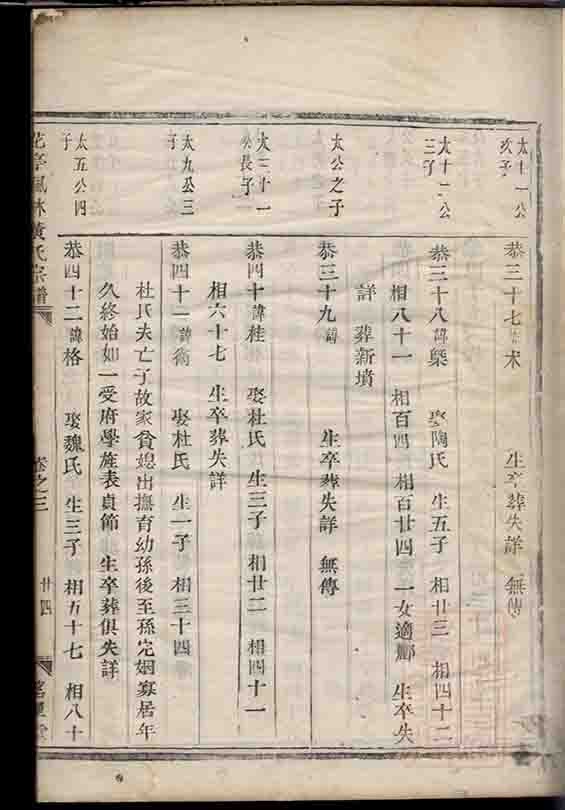 太十一公
次子
恭三十七諱术 生卒葬失詳 無傳
太十二公
三子
恭三十八諱槩 娶陶氏 生五子 相廿三 相四十二
相八十一 相百四 相百廿四 一女適鄺 生卒失
詳 葬新墳
太公之子
恭三十九諱 生卒葬失詳 無傳
太三十一
公長子
恭四十諱桂 娶杜氏 生三子 相廿二 相四十一
相六十七 生卒葬失詳
太九公三
子
恭四十一諱衛 娶杜氏 生一子 相三十四
杜氏夫亡子故家貧媳出撫育幼孫後至孫完姻寡居年
久終始如一受府學旌表貞節 生卒葬俱失詳
太五公四
子
恭四十二諱格 娶魏氏 生三子 相五十七 相八十
花亭鳳林黃氏宗譜
卷之三
廿四